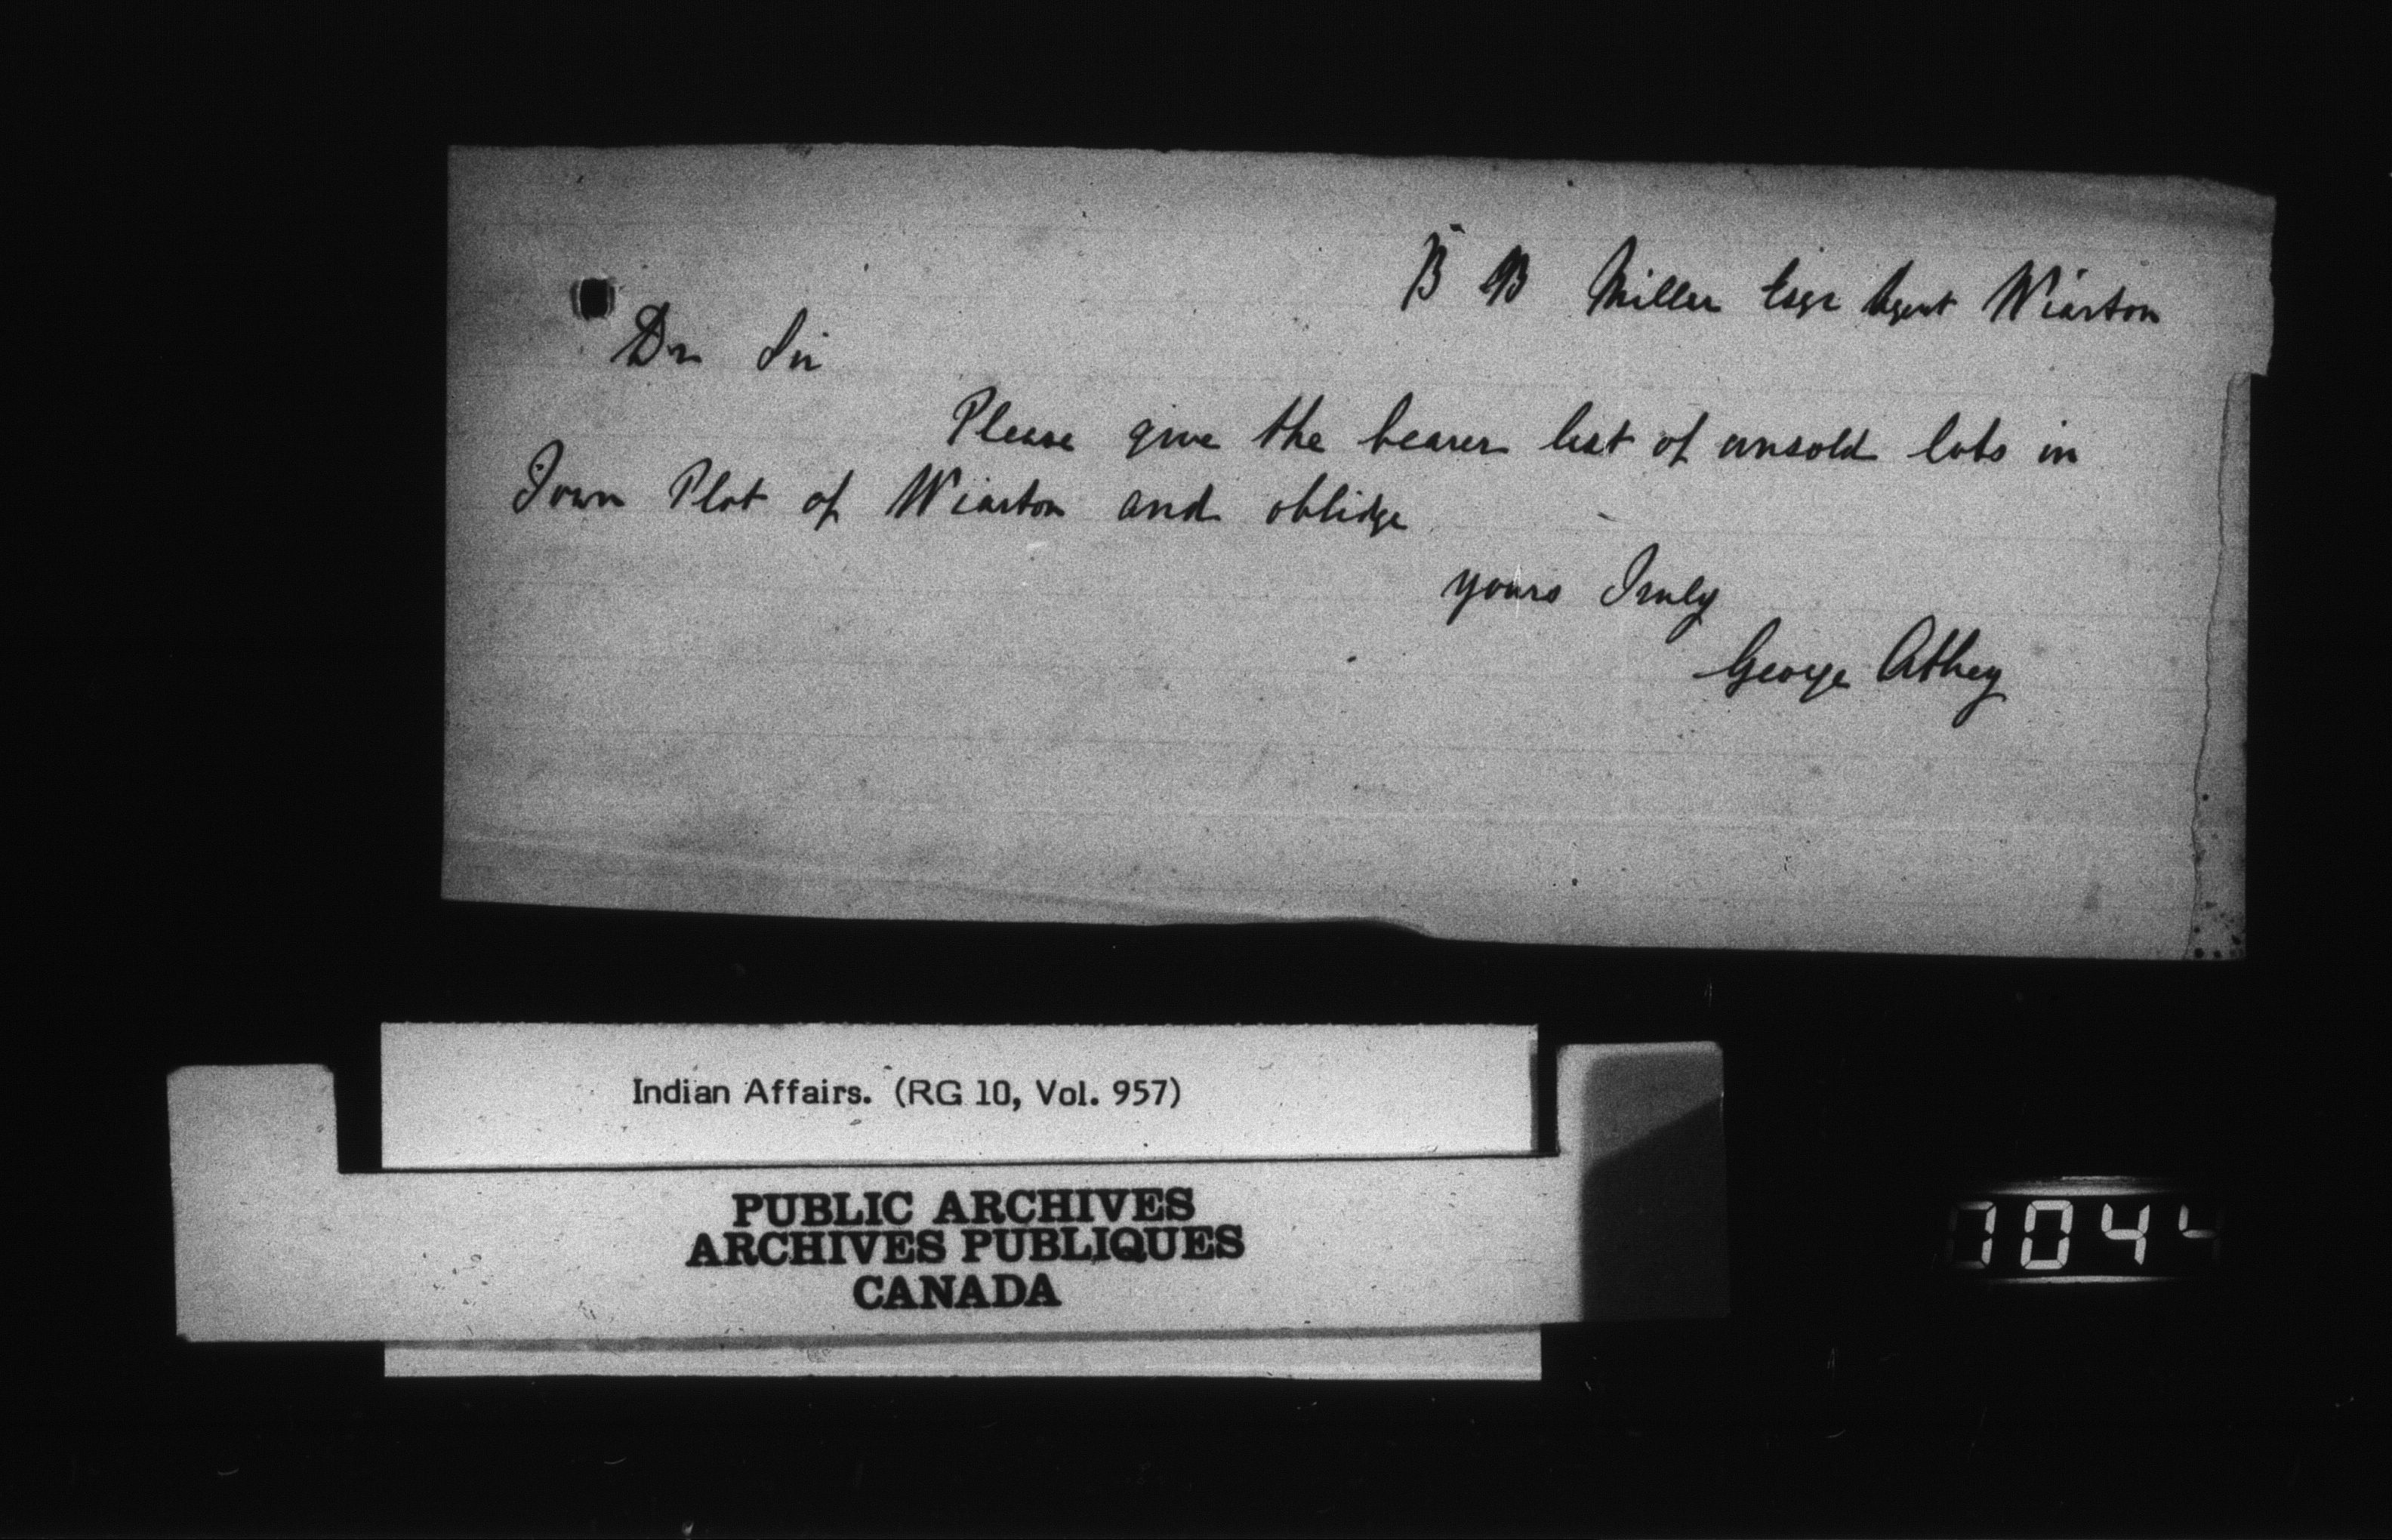 B B Miller Esqr Agent Wiarton
Dr Sir
Please give the bearer list of unsold lots in
Town Plot of Wiarton and oblidge
yours Truly
George Athey
Indian Affairs. (RG 10, Vol. 957)
PUBLIC ARCHIVES
ARCHIVES PUBLIQUES
CANADA